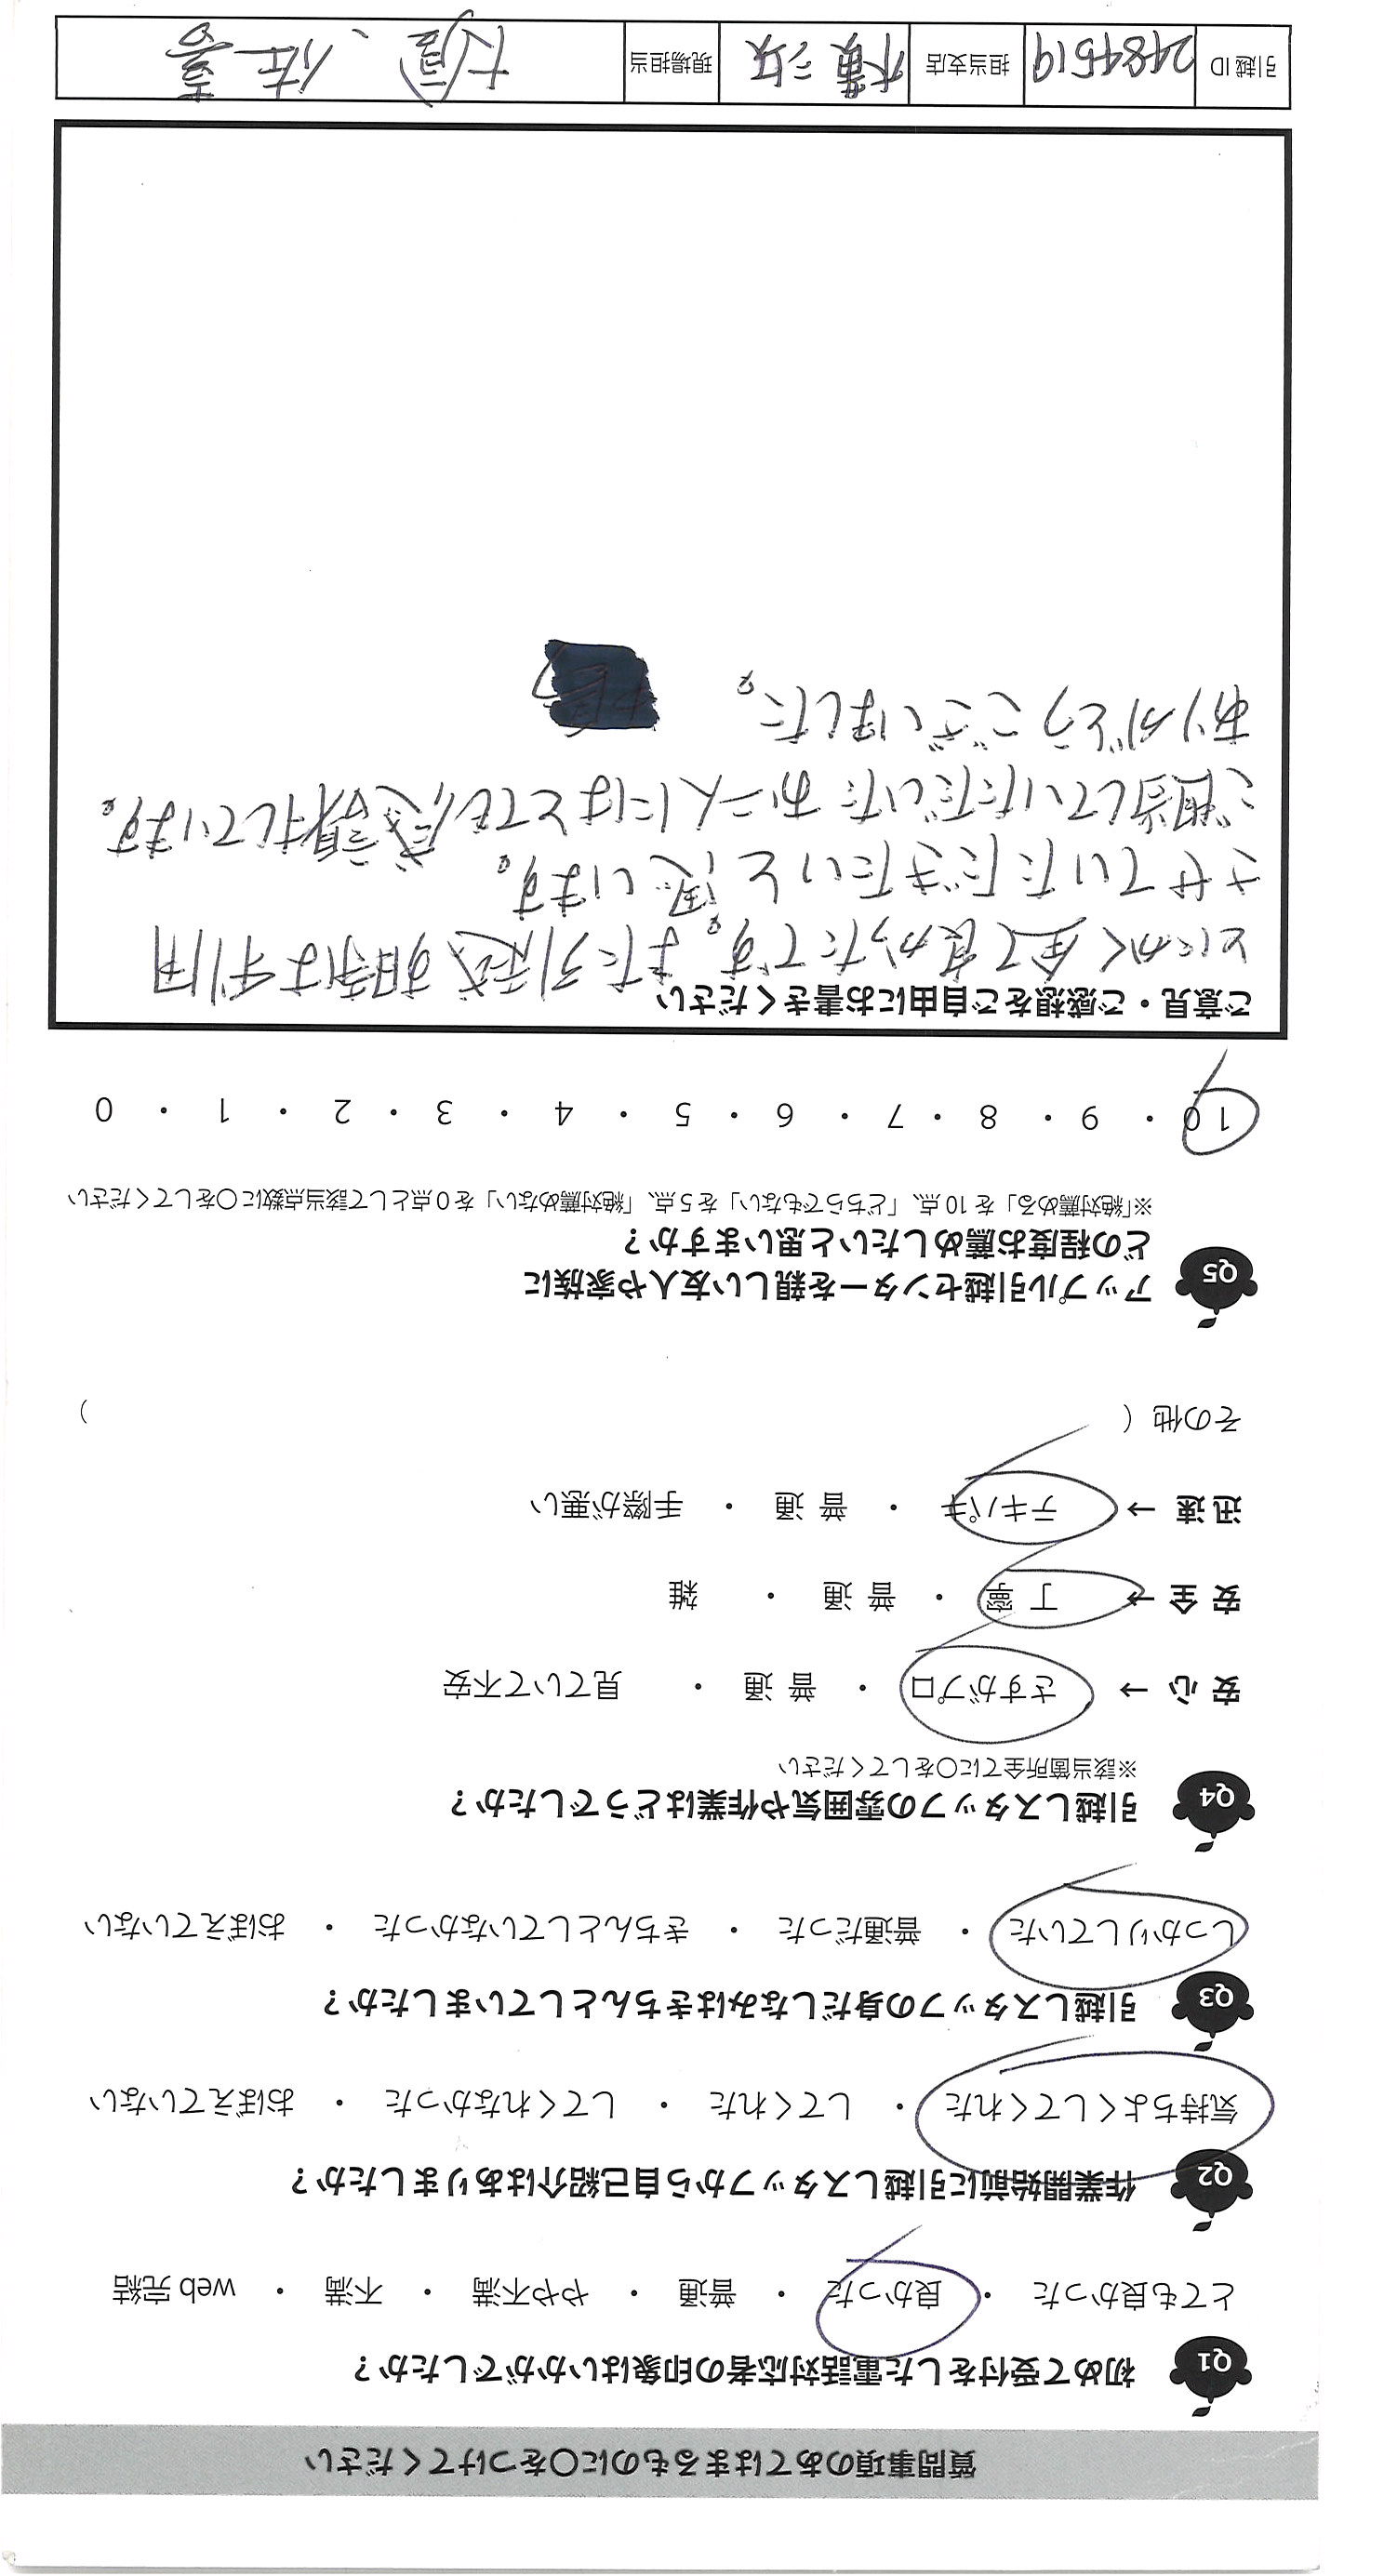 質問事項のあてはまるものに〇をつけてください
Q1 初めて受付をした電話対応者の印象はいかがでしたか？
とても良かった ・ 良かった ・ 普通 ・ やや不満 ・ 不満 ・ web 完結
Q2 作業開始前に引越しスタッフから自己紹介はありましたか？
気持ちよくしてくれた ・ してくれた ・ してくれなかった ・ おぼえていない
Q3 引越しスタッフの身だしなみはきちんとしていましたか？
しっかりしていた ・ 普通だった ・ きちんとしていなかった ・ おぼえていない
Q4 引越しスタッフの雰囲気や作業はどうでしたか？
※該当箇所全てに〇をしてください
安 心 → さすがプロ ・ 普 通 ・ 見ていて不安
安 全 → 丁 寧 ・ 普 通 ・ 雑
迅 速 → テキパキ ・ 普 通 ・ 手際が悪い
その他（ ）
Q5 アップル引越センターを親しい友人や家族に
どの程度お薦めしたいと思いますか？
※「絶対薦める」を 10 点、「どちらでもない」を 5 点、「絶対薦めない」を 0 点として該当点数に〇をしてください
10 ・ 9 ・ 8 ・ 7 ・ 6 ・ 5 ・ 4 ・ 3 ・ 2 ・ 1 ・ 0
ご意見・ご感想をご自由にお書きください
とにかく全て良かったです。また引越す時は利用
させていただきたいと思います。
ご担当していただいたお二人にはとても感謝しています。
ありがとうございました。
引越 ID 2484519 担当支店 横浜 現場担当